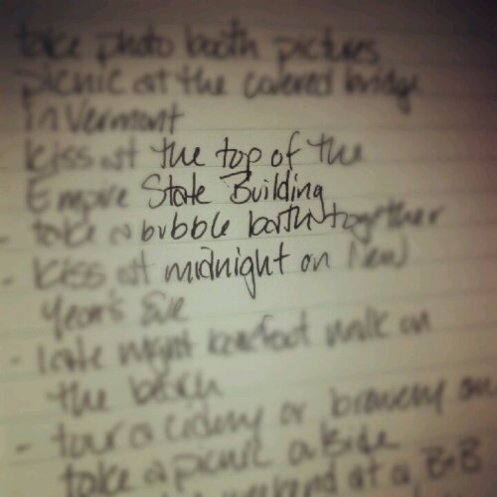 take photo booth pictures
picnic at the covered bridge
in Vermont
kiss at the top of the
Empire State Building
- take a bubble bath together
- kiss at midnight on New
Year's Eve
- late night barefoot walk on
the beach
- tour a winery or brewery and
take a picnic
weekend at a B+B